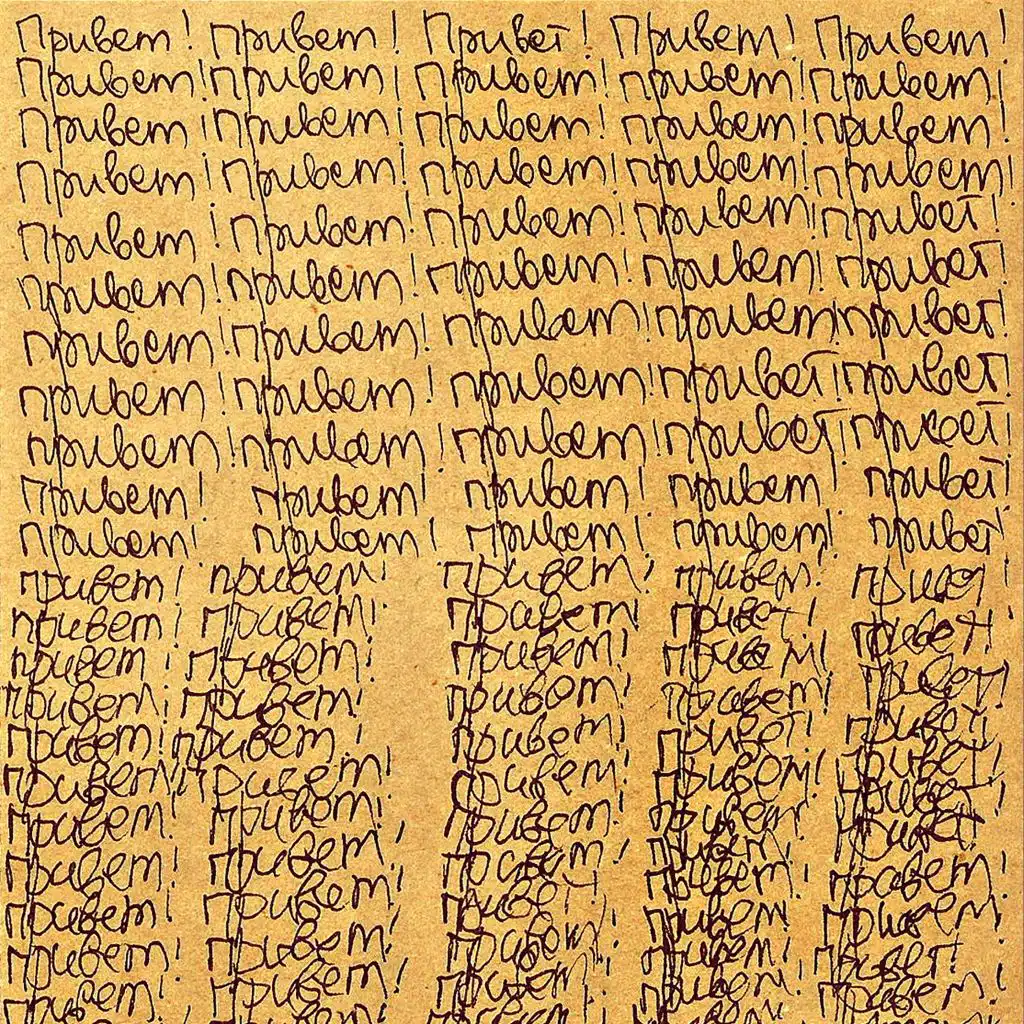 Привет! привет! Привет! Привет! Привет!
Привет! привет! Привет! привет! привет!
Привет! Привет! Привет! привет! привет!
Привет! Привет! Привет! привет! привет!
Привет! Привет! Привет! привет! привет!
привет! привет! привет! привет! привет!
привет! привет! привет! привет! привет!
привет! привет! привет! привет! привет!
привет! привет! привет! привет! привет!
привет! привет! привет! привет! привет!
привет! привет! привет! привет! привет!
привет! привет! привет! привет!
привет! привет! привет! привет! привет!
привет! привет! привет! привет!
привет! привет! привет! привет! привет!
привет! привет! привет! привет! привет!
привет! привет! привет! привет! привет!
привет! привет! привет! привет!
привет! привет! привет! привет!
привет! привет! привет! привет!
привет! привет! привет! привет! привет!
привет! привет! привет! привет! привет!
привет! привет! привет! привет!